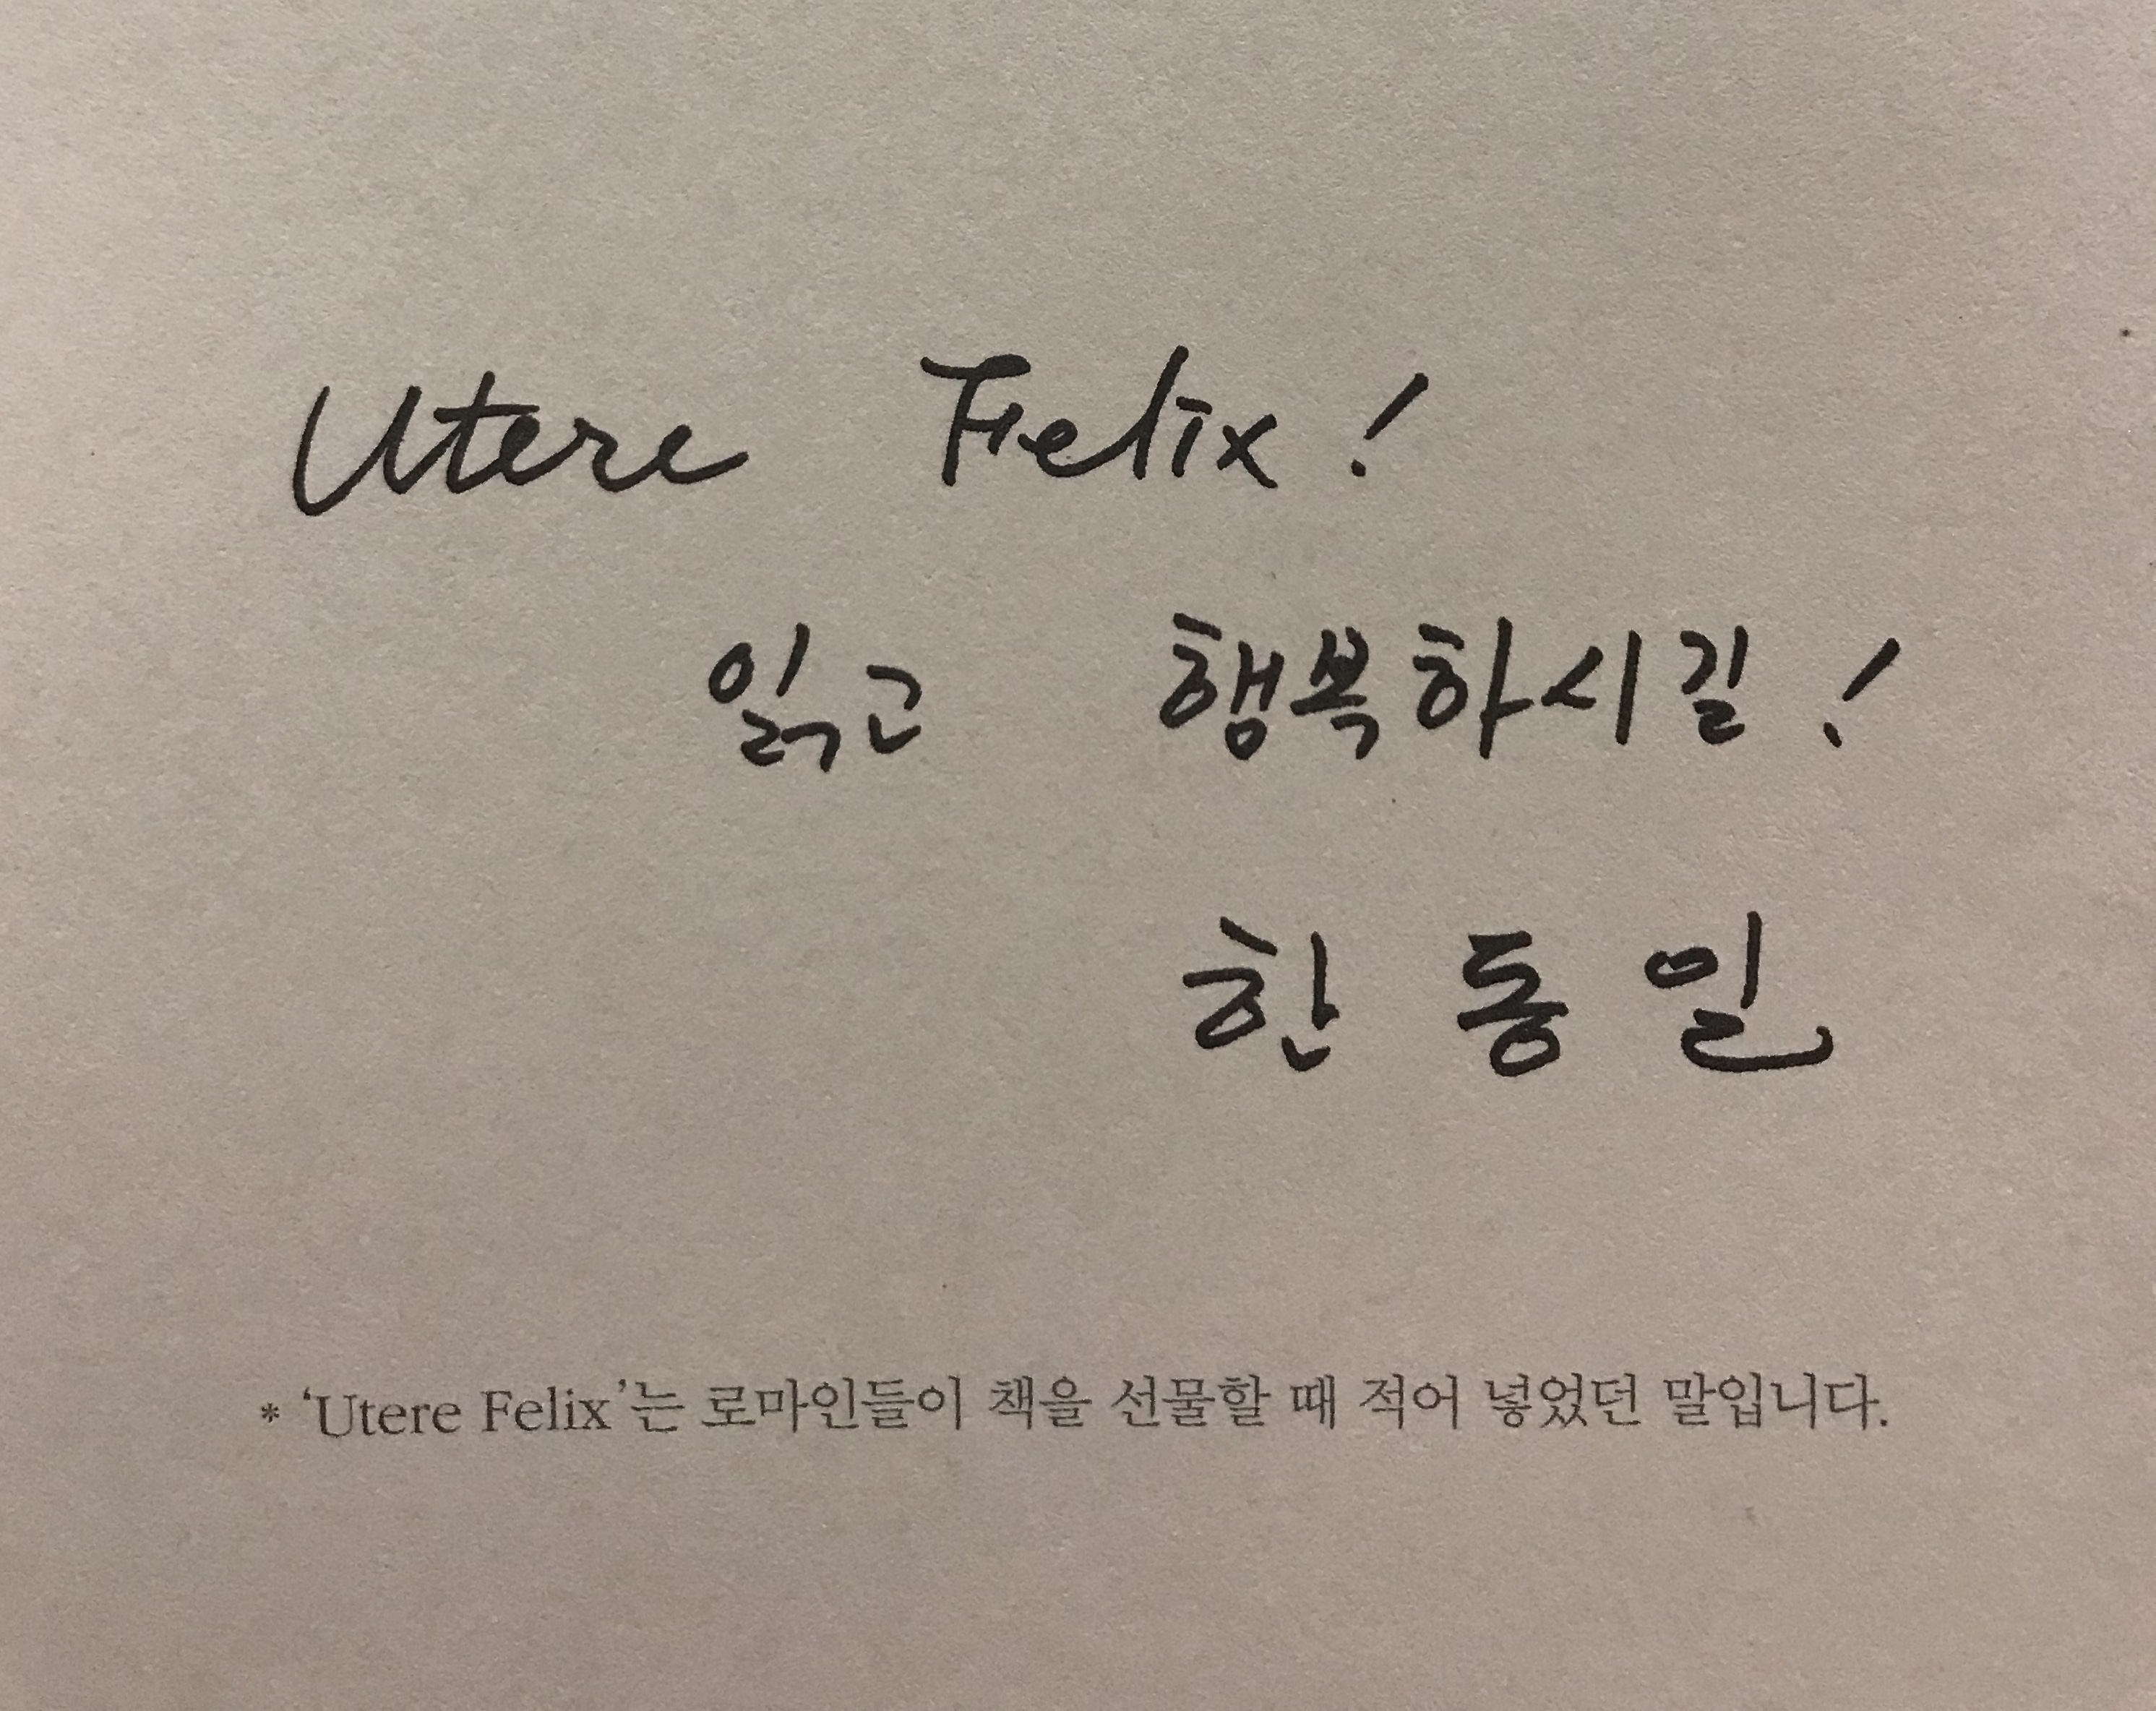 Utere Felix!
읽고 행복하시길!
한동일
* ‘Utere Felix’는 로마인들이 책을 선물할 때 적어 넣었던 말입니다.